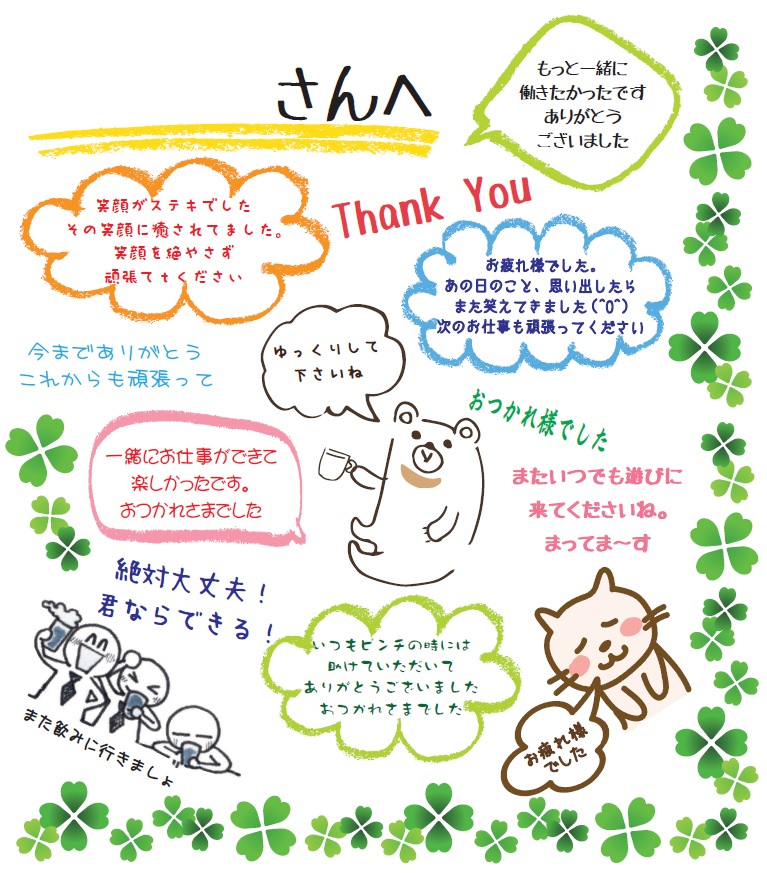 さんへ
もっと一緒に
働きたかったです
ありがとう
ございました
Thank You
笑顔がステキでした
その笑顔に癒されてました。
笑顔を絶やさず
頑張てtください
お疲れ様でした。
あの日のこと、思い出したら
また笑えてきました(^0^)
次のお仕事も頑張ってください
今までありがとう
これからも頑張って
ゆっくりして
下さいね
おつかれ様でした
一緒にお仕事ができて
楽しかったです。
おつかれさまでした
またいつでも遊びに
来てくださいね。
まってま～す
絶対大丈夫！
君ならできる！
いつもピンチの時には
助けていただいて
ありがとうございました
おつかれさまでした
また飲みに行きましょ
お疲れ様
でした